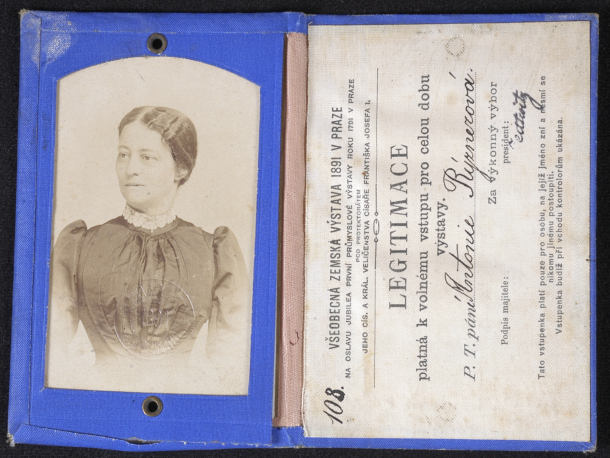 VŠEOBECNÁ ZEMSKÁ VÝSTAVA 1891 V PRAZE
NA OSLAVU JUBILEA PRVNÍ PRŮMYSLOVÉ VÝSTAVY ROKU 1791 V PRAZE
POD PROTEKTORÁTEM
JEHO CÍS. A KRÁL. VELIČENSTVA CÍSAŘE FRANTIŠKA JOSEFA I.
LEGITIMACE
platná k volnému vstupu pro celou dobu
výstavy.
P. T. paní Antonie Rýznerová.
Za výkonný výbor
president:
Podpis majitele:
Tato vstupenka platí pouze pro osobu, na jejíž jméno zní a nesmí se
nikomu jinému postoupiti.
Vstupenka budiž při vchodu kontrolorům ukázána.
108.